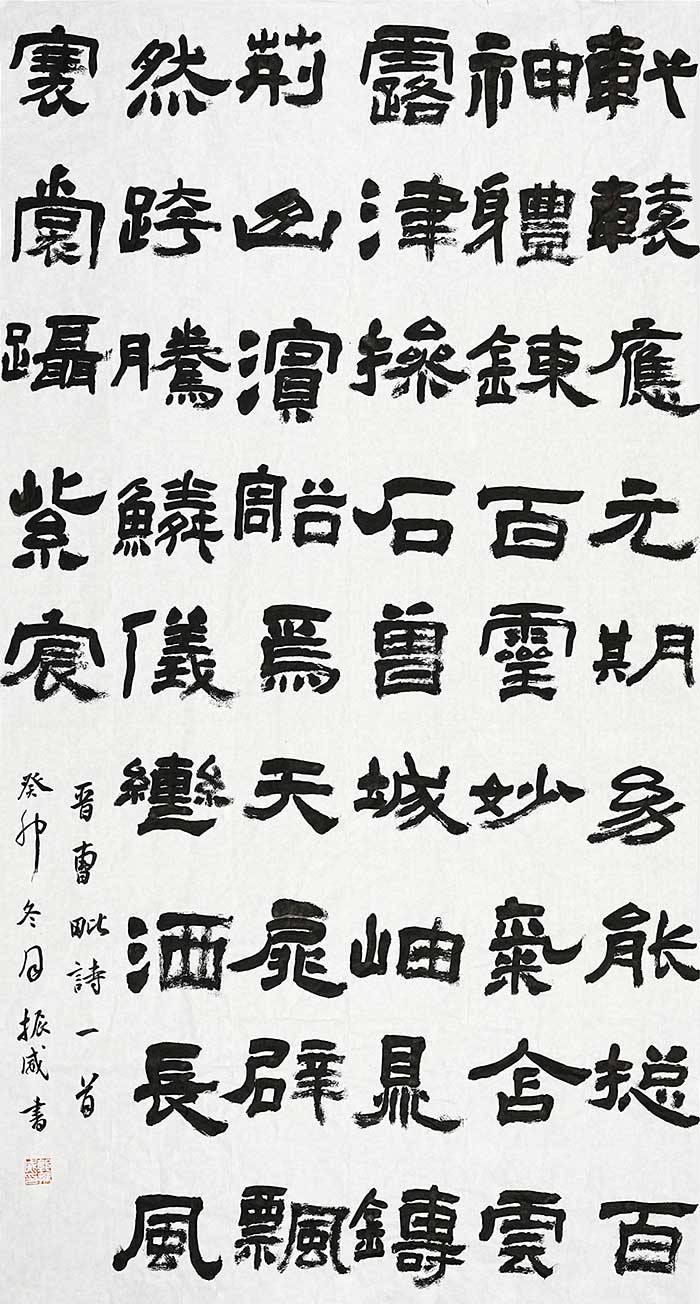 軒轅應元期幼能揔百
神軆鍊百靈妙氣含雲
露津摻石曾城岫鼎鑄
荊山濱豁焉天扉辟飄
然跨騰鱗儀轡洒長風
褰裳躡紫宸
晉曹毗詩一首
癸卯冬月振威書